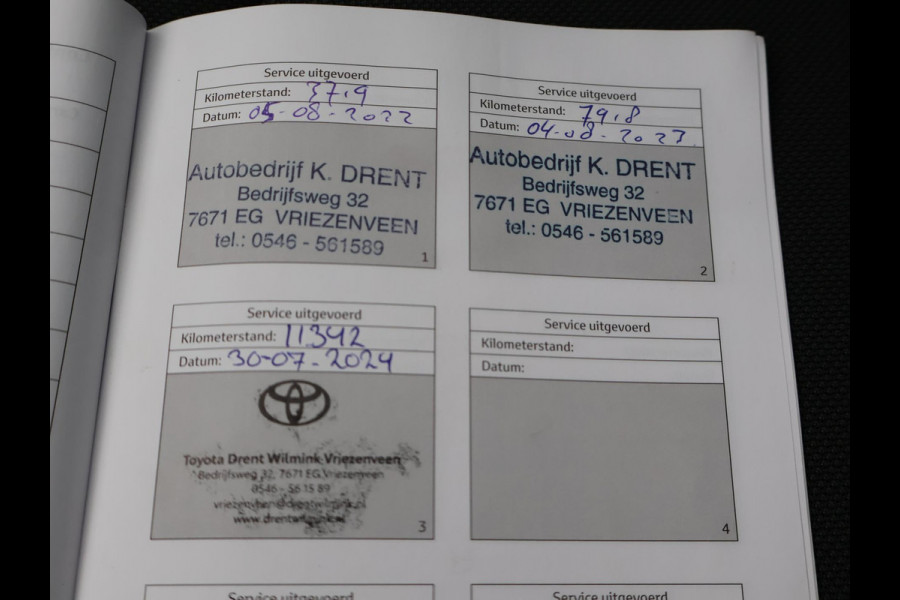 Service uitgevoerd
Kilometerstand: 3719
Datum: 05-08-2022
Autobedrijf K. DRENT
Bedrijfsweg 32
7671 EG VRIEZENVEEN
tel.: 0546 - 561589
1
Service uitgevoerd
Kilometerstand: 7918
Datum: 04-08-2023
Autobedrijf K. DRENT
Bedrijfsweg 32
7671 EG VRIEZENVEEN
tel.: 0546 - 561589
2
Service uitgevoerd
Kilometerstand: 11342
Datum: 30-07-2024
Toyota Drent Wilmink Vriezenveen
Bedrijfsweg 32, 7671 EG Vriezenveen
0546 - 56 15 89
vriezenveen@drentwilmink.nl
www.drentwilmink.nl
3
Service uitgevoerd
Kilometerstand:
Datum:
4
Service uitgevoerd
Service uitgevoerd